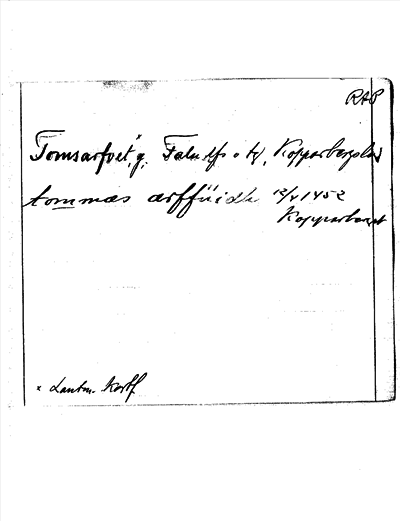 RAP
Tomsarfvet, g. Falu lfs o tg, Kopparbergs län
tommæs ærffüidh 12/5 1452
Kopparberget
× Lantm. kontf